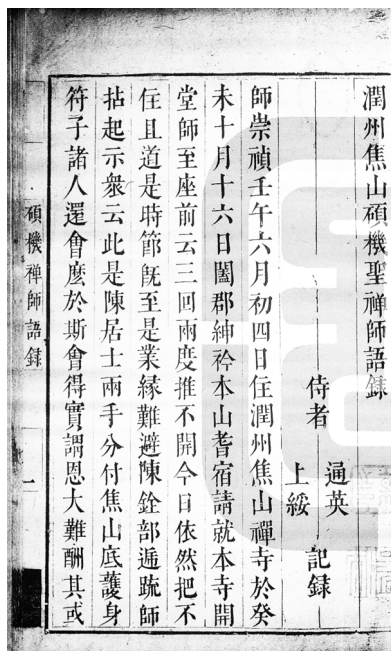 潤州焦山碩機聖禪師語錄
侍者
通英
上綏
記錄
師崇禎壬午六月初四日住潤州焦山禪寺於癸
未十月十六日闔郡紳衿本山耆宿請就本寺開
堂師至座前云三回兩度推不開今日依然把不
住且道是時節旣至是業緣難避陳銓部遞䟽師
拈起示衆云此是陳居士兩手分付焦山底護身
符子諸人還會麽於斯會得實謂恩大難酬其或
碩機禪師語錄
一